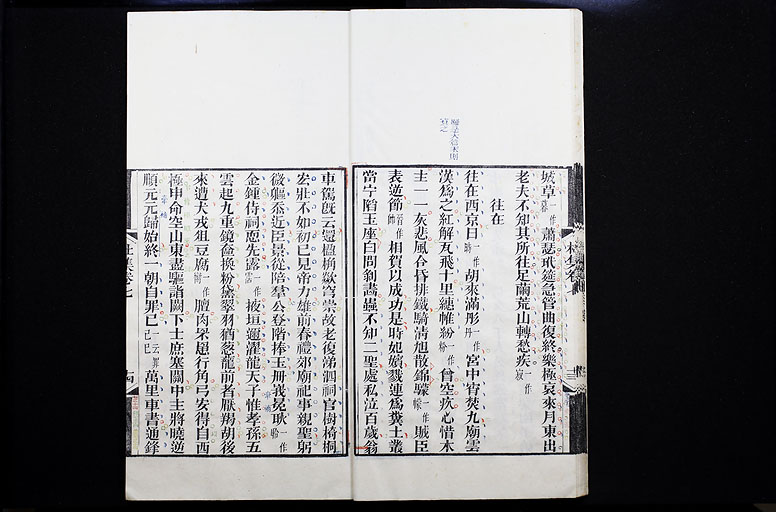 城草一作暮蕭瑟玳筵急管曲復終樂極哀來月東出
老夫不知其所往足繭荒山轉愁疾一作寂
往在
往在西京日一作時胡來滿彤一作丹宮中宵焚九廟雲
漢爲之紅解瓦飛十里繐帷紛一作粉曾空疚心惜木
主一一灰悲風合昏排鐵騎清旭散錦幪一作賊臣
表逆節一作帥相賀以成功是時妃嬪戮連爲糞土叢
當宁陷玉座白間剝畫蟲不知二聖處私泣百歲翁
車駕旣云還楹桷欻穹崇故老復涕泗祠官樹椅桐
宏壯不如初已見帝力雄前春禮郊廟祀事親聖躬
微軀忝近臣景從陪羣公登階捧玉冊峩冕耿一作聆
金鍾侍祠恧先露一作掖垣邇濯龍天子惟孝孫五
雲起九重鏡奩換粉黛翠羽猶葱朧前者厭羯胡後
來遭犬戎俎豆腐一作膻肉罘罳行角弓安得自西
極申命空山東盡驅詣闕下士庶塞關中主將曉逆
順元元歸始終一朝自罪己一云罪萬里車書通鋒